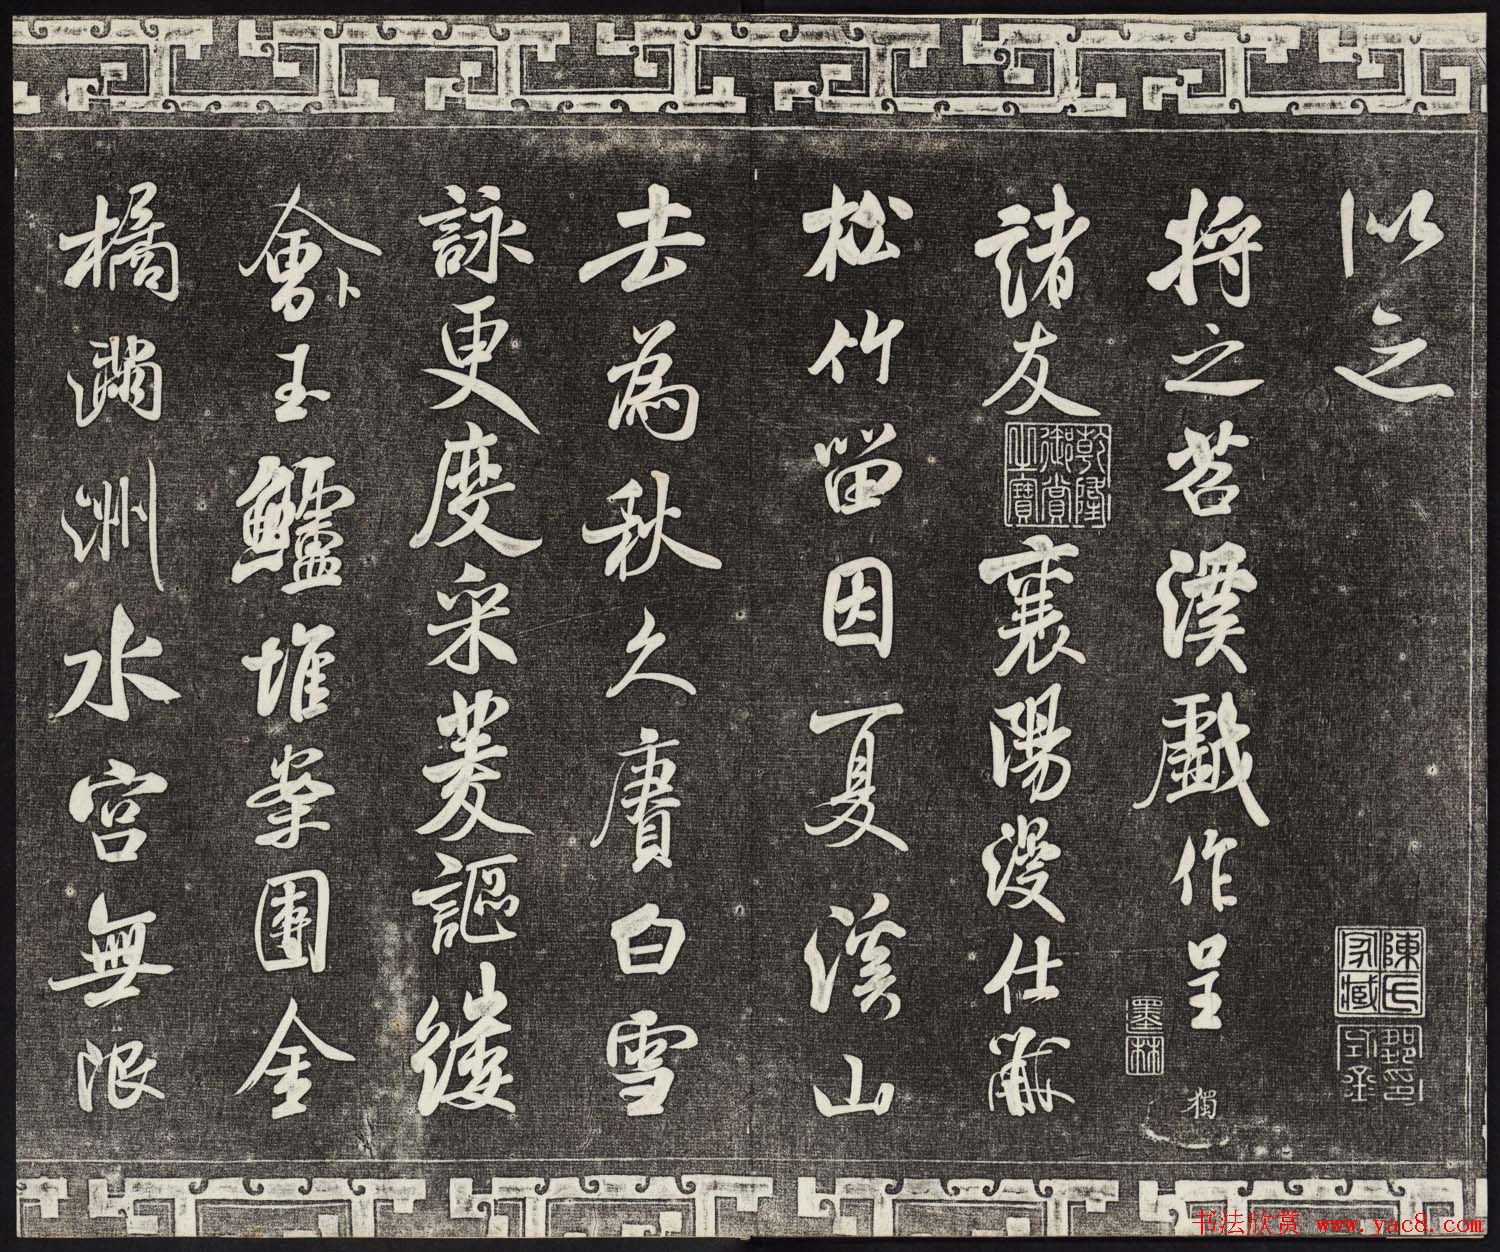 以之
陳氏家藏
將之苕溪戲作呈
墨林
獨
諸友 襄陽漫仕黻
乾隆御賞之寶
松竹留因夏溪山
去為秋久賡白雪
詠更度采菱謳縷
會卜玉鱸堆案團金
橘滿洲水宮無限
书法欣赏 www.yac8.com